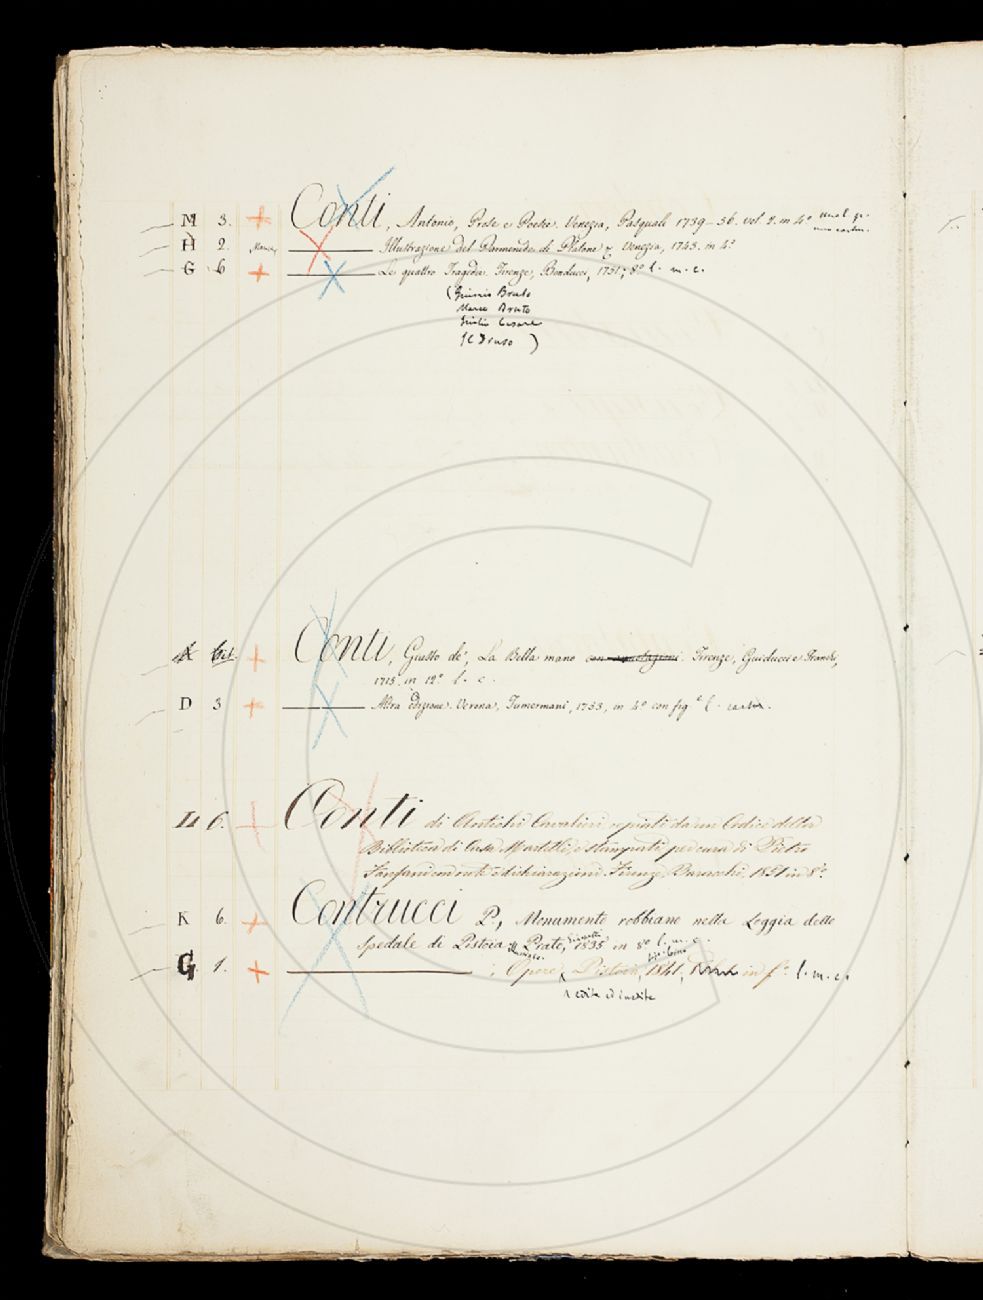 M 3. Conti, Antonio, Prose e Poesie. Venezia, Pasquali 1739-56. vol 2. in 4°
H 2. Manca Illustrazione del Parmenide di Platone Venezia, 1743. in 4°
G 6 Le quattro Tragedie. Firenze, Bonducci, 1751; 8° l. m. c.
(Giunio Bruto
Marco Bruto
Giulio Cesare
Druso)
Conti, Giusto de', La Bella mano con annotazioni. Firenze, Guiducci e Franchi,
1715. in 12° l. c.
D 3 Altra edizione. Verona, Tumermani, 1733, in 4° con fig.e l.
L 6. Conti di Antichi Cavalieri copiati da un Codice della
Biblioteca di Casa Martelli, e stampati per cura di Pietro
Fanfani con note e dichiarazioni. Firenze, Baracchi, 1851 in 8°.
K 6. Contrucci P., Monumento robbiano nella Loggia dello
Spedale di Pistoia Prato, 1835 in 8° l. m. c.
G. 1. ; Opere, Pistoia, 1841, in f.° l. m. c.
edite ed inedite